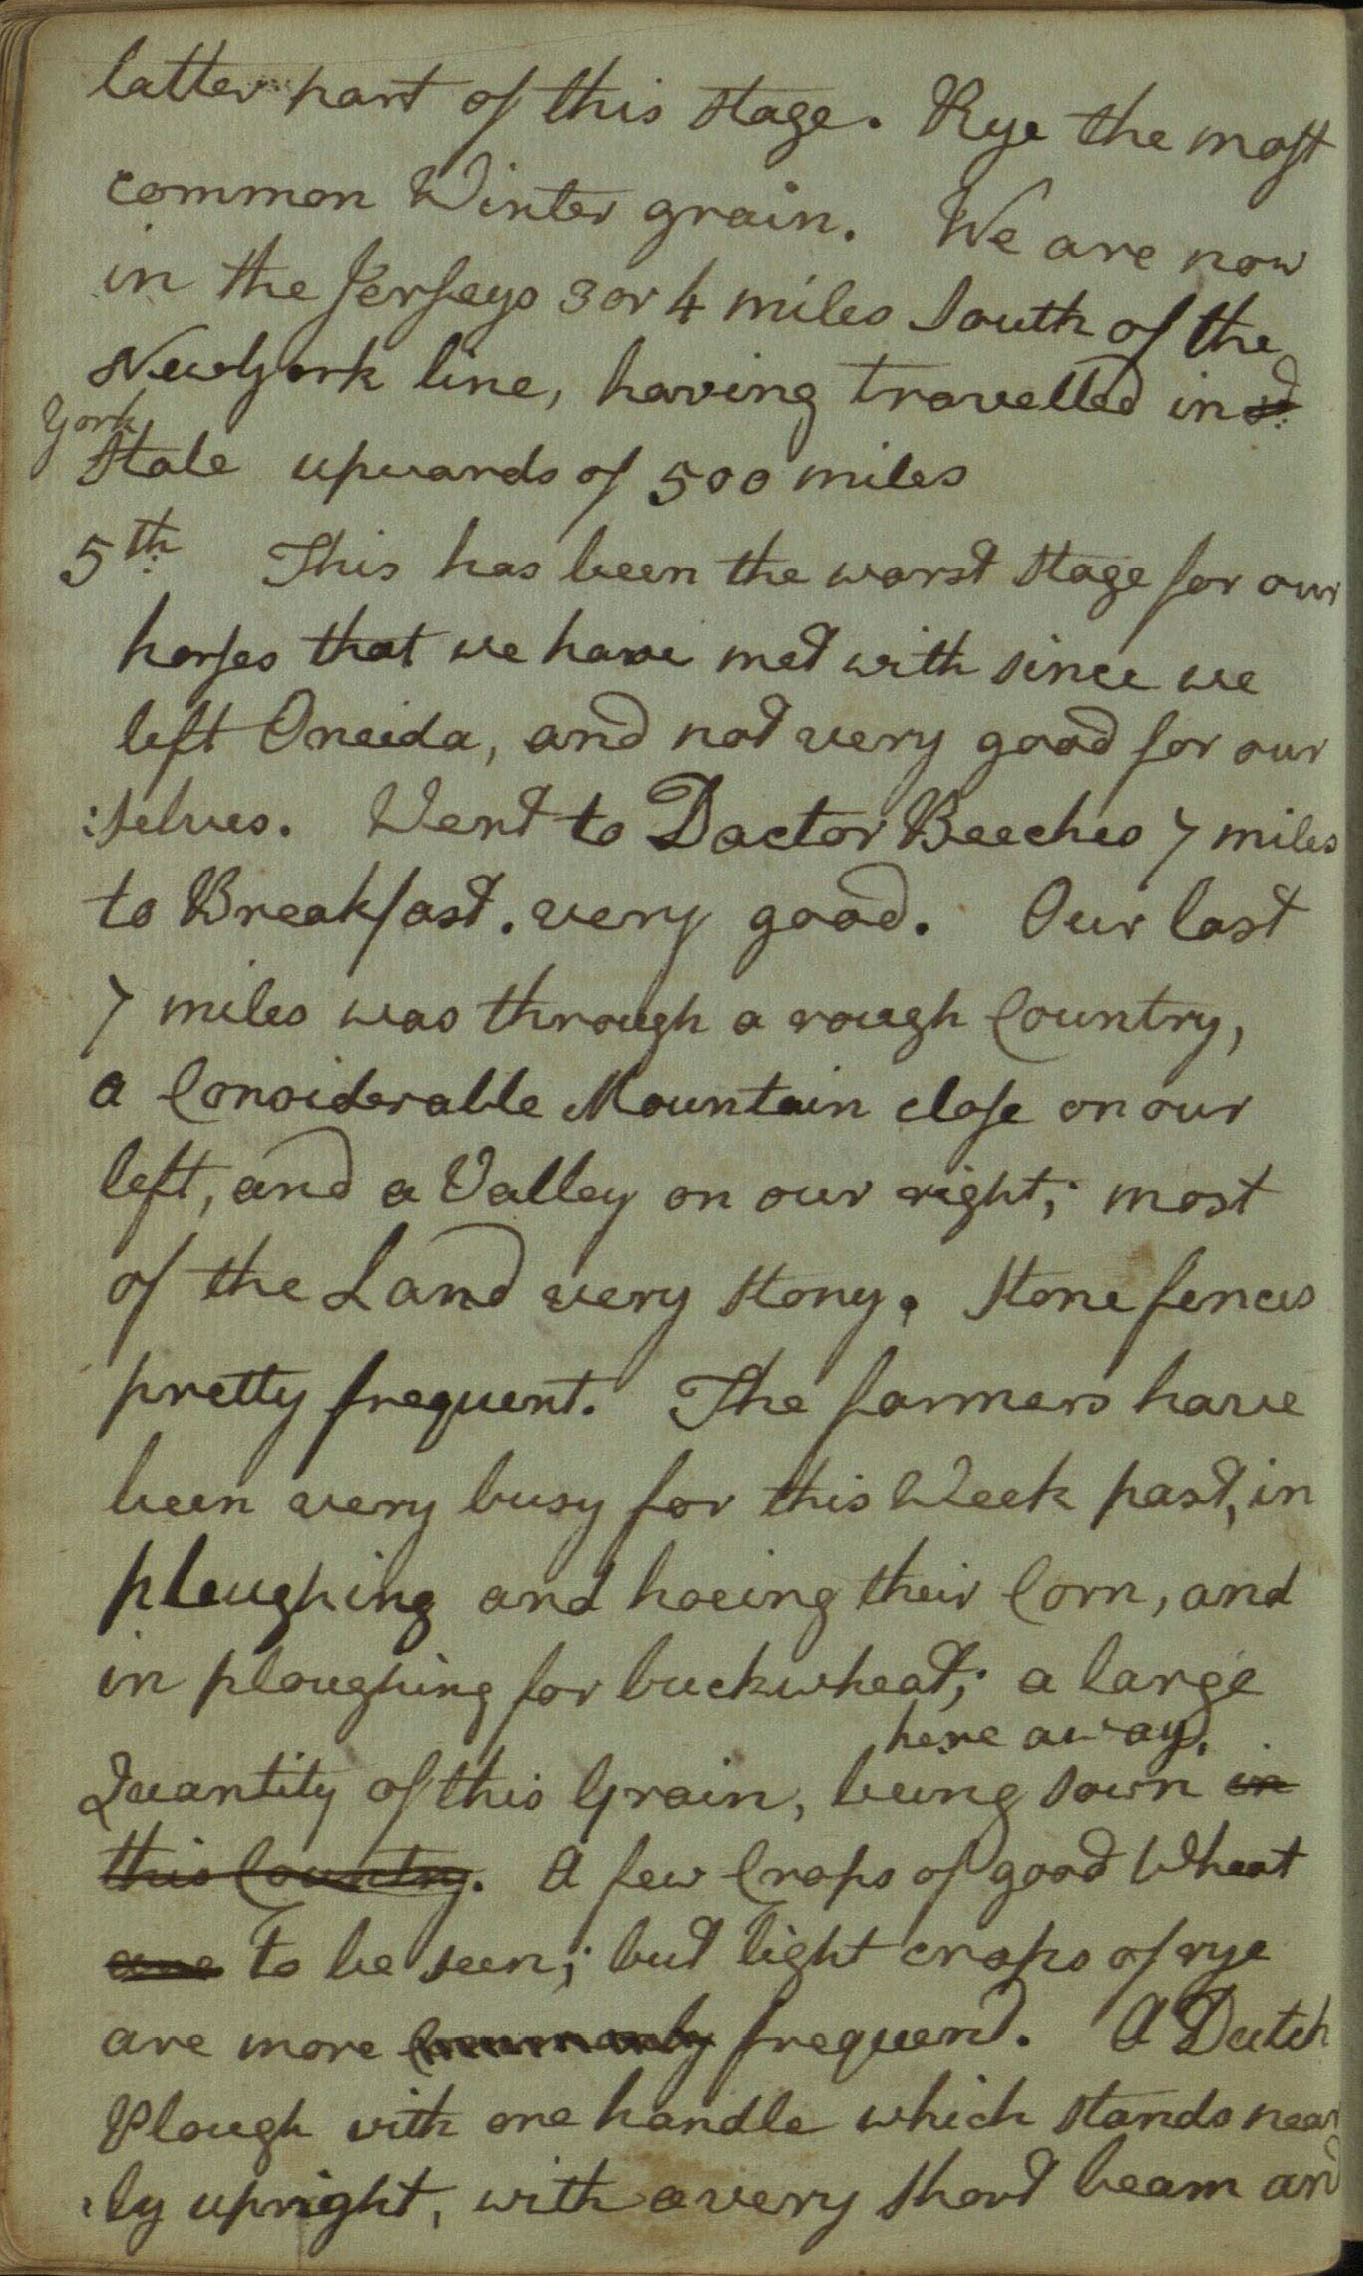 latter part of this stage. Rye the most
common Winter grain. We are now
in the Jerseys 3 or 4 miles South of the
NewYork line, having travelled in sd.
York
State upwards of 500 miles
5th. This has been the worst stage for our
horses that we have met with since we
left Oneida, and not very good for our
:selves. Went to Doctor Beeches 7 miles
to Breakfast. very good. Our last
7 miles was through a rough Country,
a Considerable Mountain close on our
left, and a Valley on our right; most
of the Land very stony. Stone fences
pretty frequent. The farmers have
been very busy for this Week past, in
ploughing and hoeing their Corn, and
in ploughing for buckwheat; a large
here away.
Quantity of this Grain, being sown in
this Country. A few Crops of good Wheat
are to be seen; but light crops of rye
are more Commonly frequent. A Dutch
Plough with one handle which stands near
:ly upright, with a very short beam and